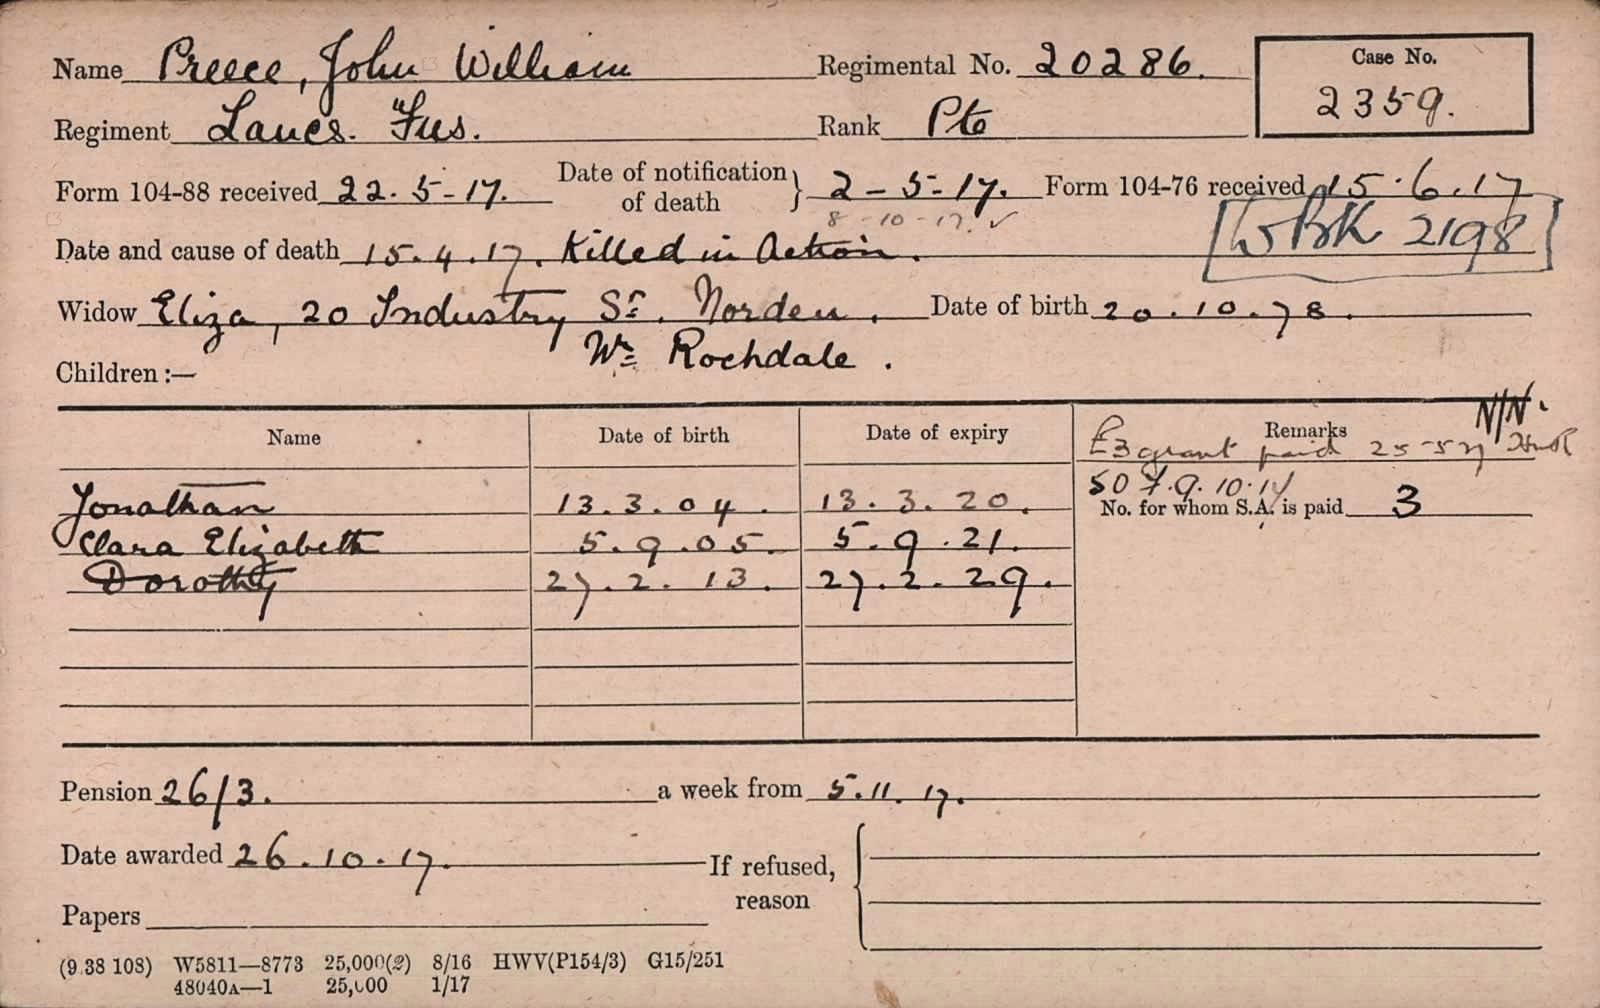 Name Preece, John William Regimental No. 20286. Case No.
2359.
Regiment Lancs. Fus. Rank Pte
Form 104-88 received 22.5-17. Date of notification of death } 2-5-17. Form 104-76 received 15.6.17
8-10-17. ✓
Date and cause of death 15.4.17. Killed in Action. W BK 2198
Widow Eliza, 20 Industry St. Norden. Date of birth 20.10.78.
Nr Rochdale.
Children :—
N/N.
Name Date of birth Date of expiry Remarks
£3 grant paid 25-5-17
SO 7.9.10.17
Jonathan 13.3.04. 13.3.20. No. for whom S.A. is paid 3
Clara Elizabeth 5.9.05. 5.9.21.
Dorothy 27.2.13. 27.2.29.
Pension 26/3. a week from 5.11.17.
Date awarded 26.10.17. If refused, reason
Papers
(9 38 108) W5811—8773 25,000(2) 8/16 HWV(P154/3) G15/251
48040A—1 25,000 1/17